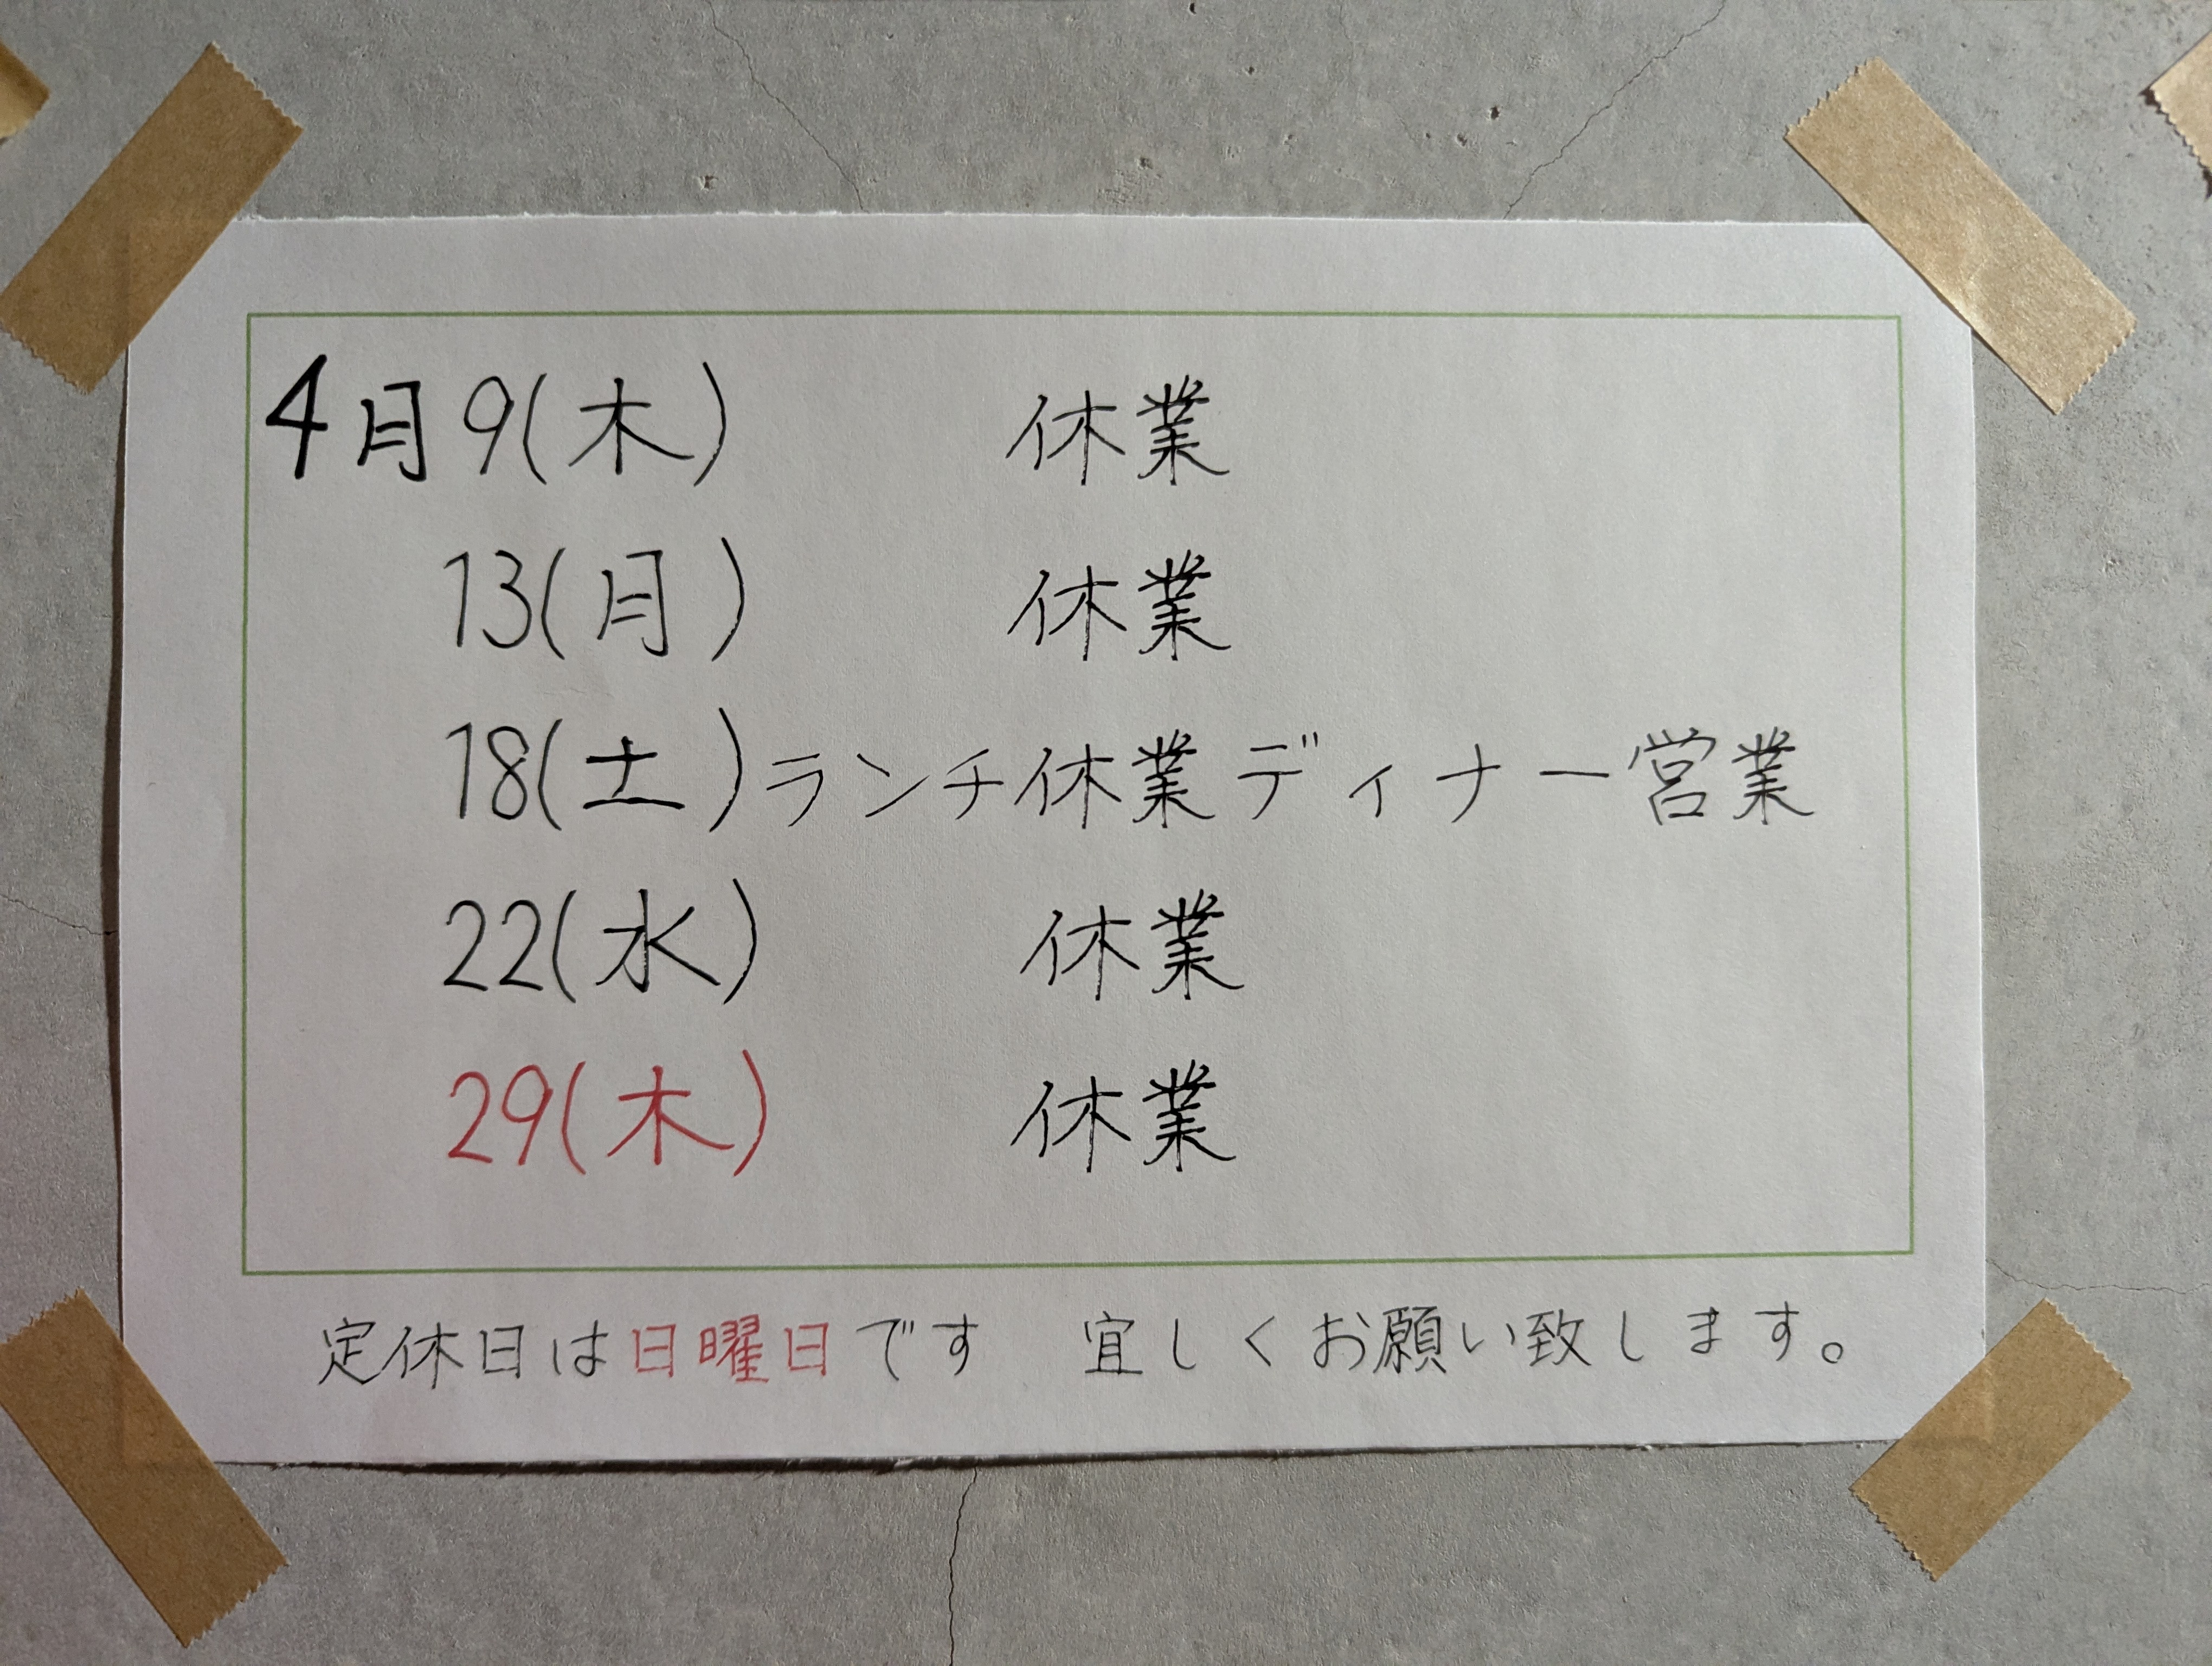 4月9(木) 休業
13(月) 休業
18(土)ランチ休業ディナー営業
22(水) 休業
29(木) 休業
定休日は日曜日です 宜しくお願い致します。